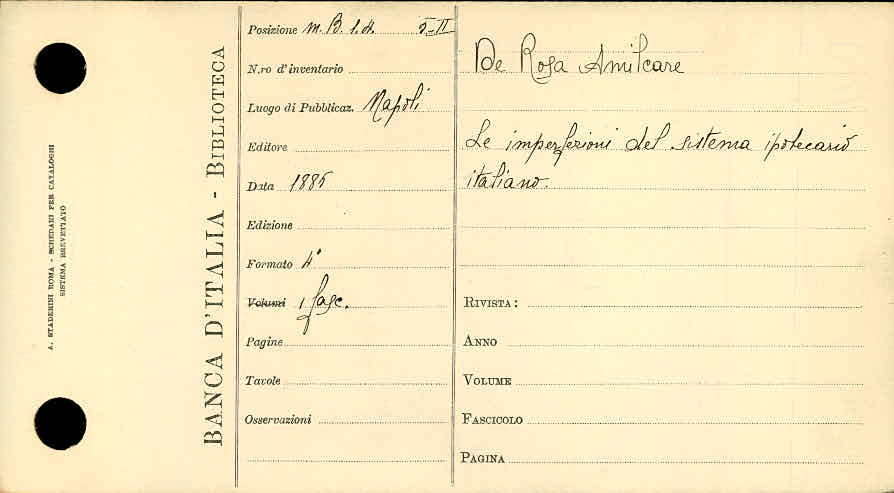 A. STADERINI ROMA - SCHEDARI PER CATALOGHI
SISTEMA BREVETTATO
BANCA D'ITALIA - BIBLIOTECA
Posizione m. B. 1.4. 5-II
N.ro d'inventario
Luogo di Pubblicaz. Napoli
Editore
Data 1885
Edizione
Formato 4°
Volumi 1 fasc.
Pagine
Tavole
Osservazioni
De Rosa Amilcare
Le imperfezioni del sistema ipotecario
italiano.
RIVISTA:
ANNO
VOLUME
FASCICOLO
PAGINA